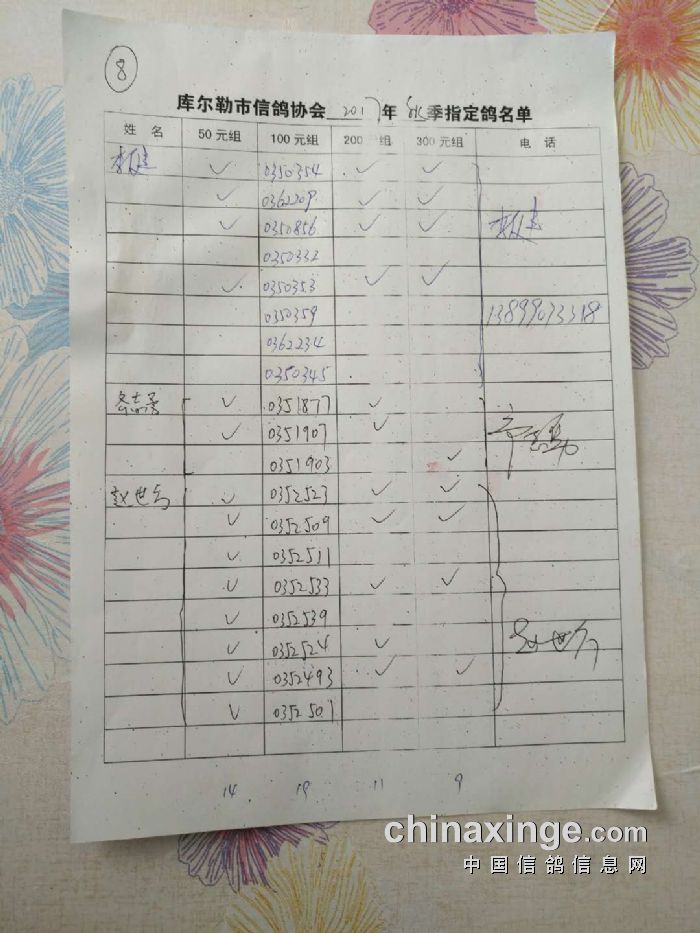 8
库尔勒市信鸽协会 2017 年 秋 季指定鸽名单
姓 名 50元组 100元组 200元组 300元组 电 话
✓ 0350354 ✓ ✓
✓ 0362209 ✓ ✓
✓ 0350856 ✓ ✓
0350332
✓ 0350353 ✓ ✓
0350359
0362234
0350345
✓ 0351877 ✓
✓ 0351907 ✓
0351903 ✓
赵世 ✓ 0352523 ✓ ✓
✓ 0352509 ✓ ✓
✓ 0352511
✓ 0352533 ✓ ✓
✓ 0352539
✓ 0352524 ✓
✓ 0352493 ✓ ✓
✓ 0352501
14 19 11 9
chinaxinge.com
中国信鸽信息网